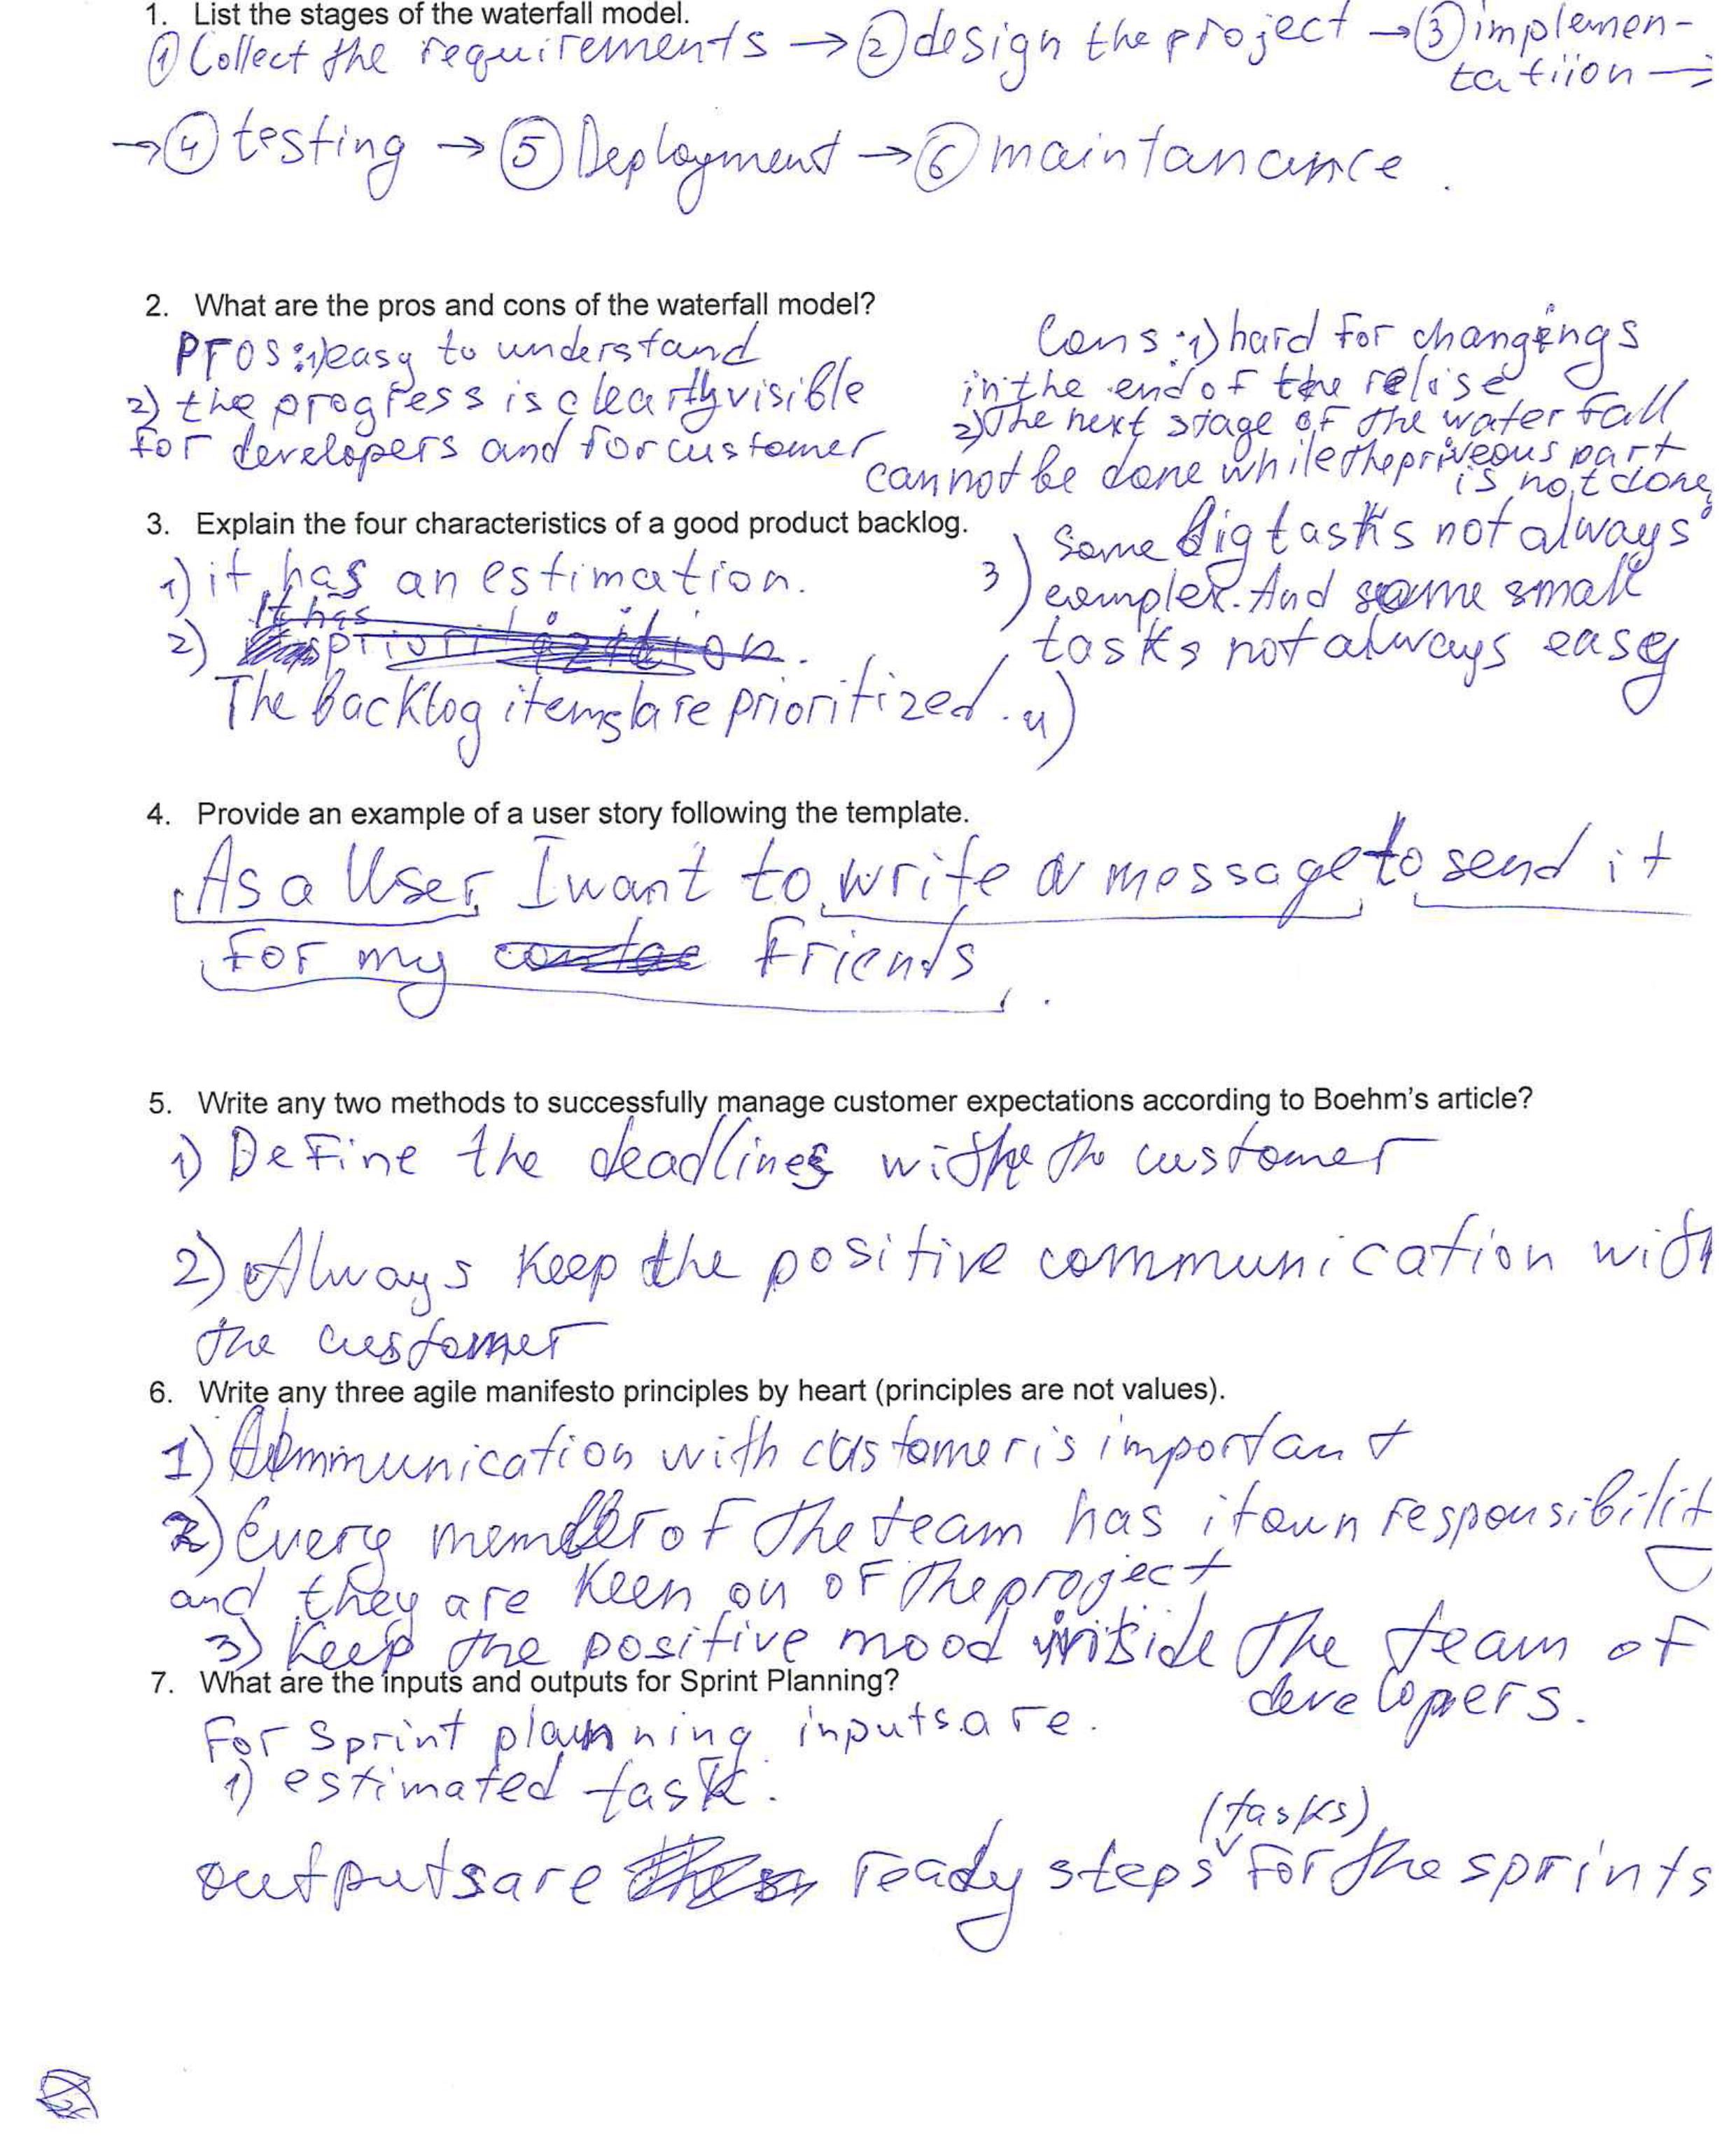 1. List the stages of the waterfall model.
① Collect the requirements → ② design the project → ③ implemen-
tatiion →
→ ④ testing → ⑤ Deployment → ⑥ maintanance.
2. What are the pros and cons of the waterfall model?
Pros: 1) easy to understand
2) the progress is clearly visible
for developers and for customer
Cons: 1) hard for changings
in the end of the relise
2) The next stage of the waterfall
cannot be done while the priveous part
is not done
3. Explain the four characteristics of a good product backlog.
1) it has an estimation.
2) It has prioritization.
The backlog items are prioritized.
3) Some big tasks not always
complex. And some small
tasks not always easy
4)
4. Provide an example of a user story following the template.
As a User I want to write a message to send it
for my friends.
5. Write any two methods to successfully manage customer expectations according to Boehm's article?
1) Define the deadlines with the customer
2) Always keep the positive communication with
the customer
6. Write any three agile manifesto principles by heart (principles are not values).
1) Communication with customer is important
2) Every member of the team has it own responsibility
and they are keen on of the project
3) Keep the positive mood inside the team of
developers.
7. What are the inputs and outputs for Sprint Planning?
For Sprint planning inputs are.
1) estimated task.
(tasks)
outputs are ready steps for the sprints